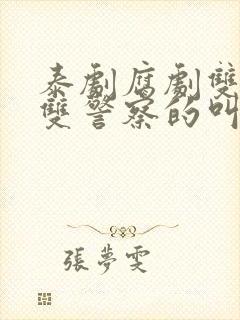 泰劇腐劇雙
雙警察的叫
張夢雯